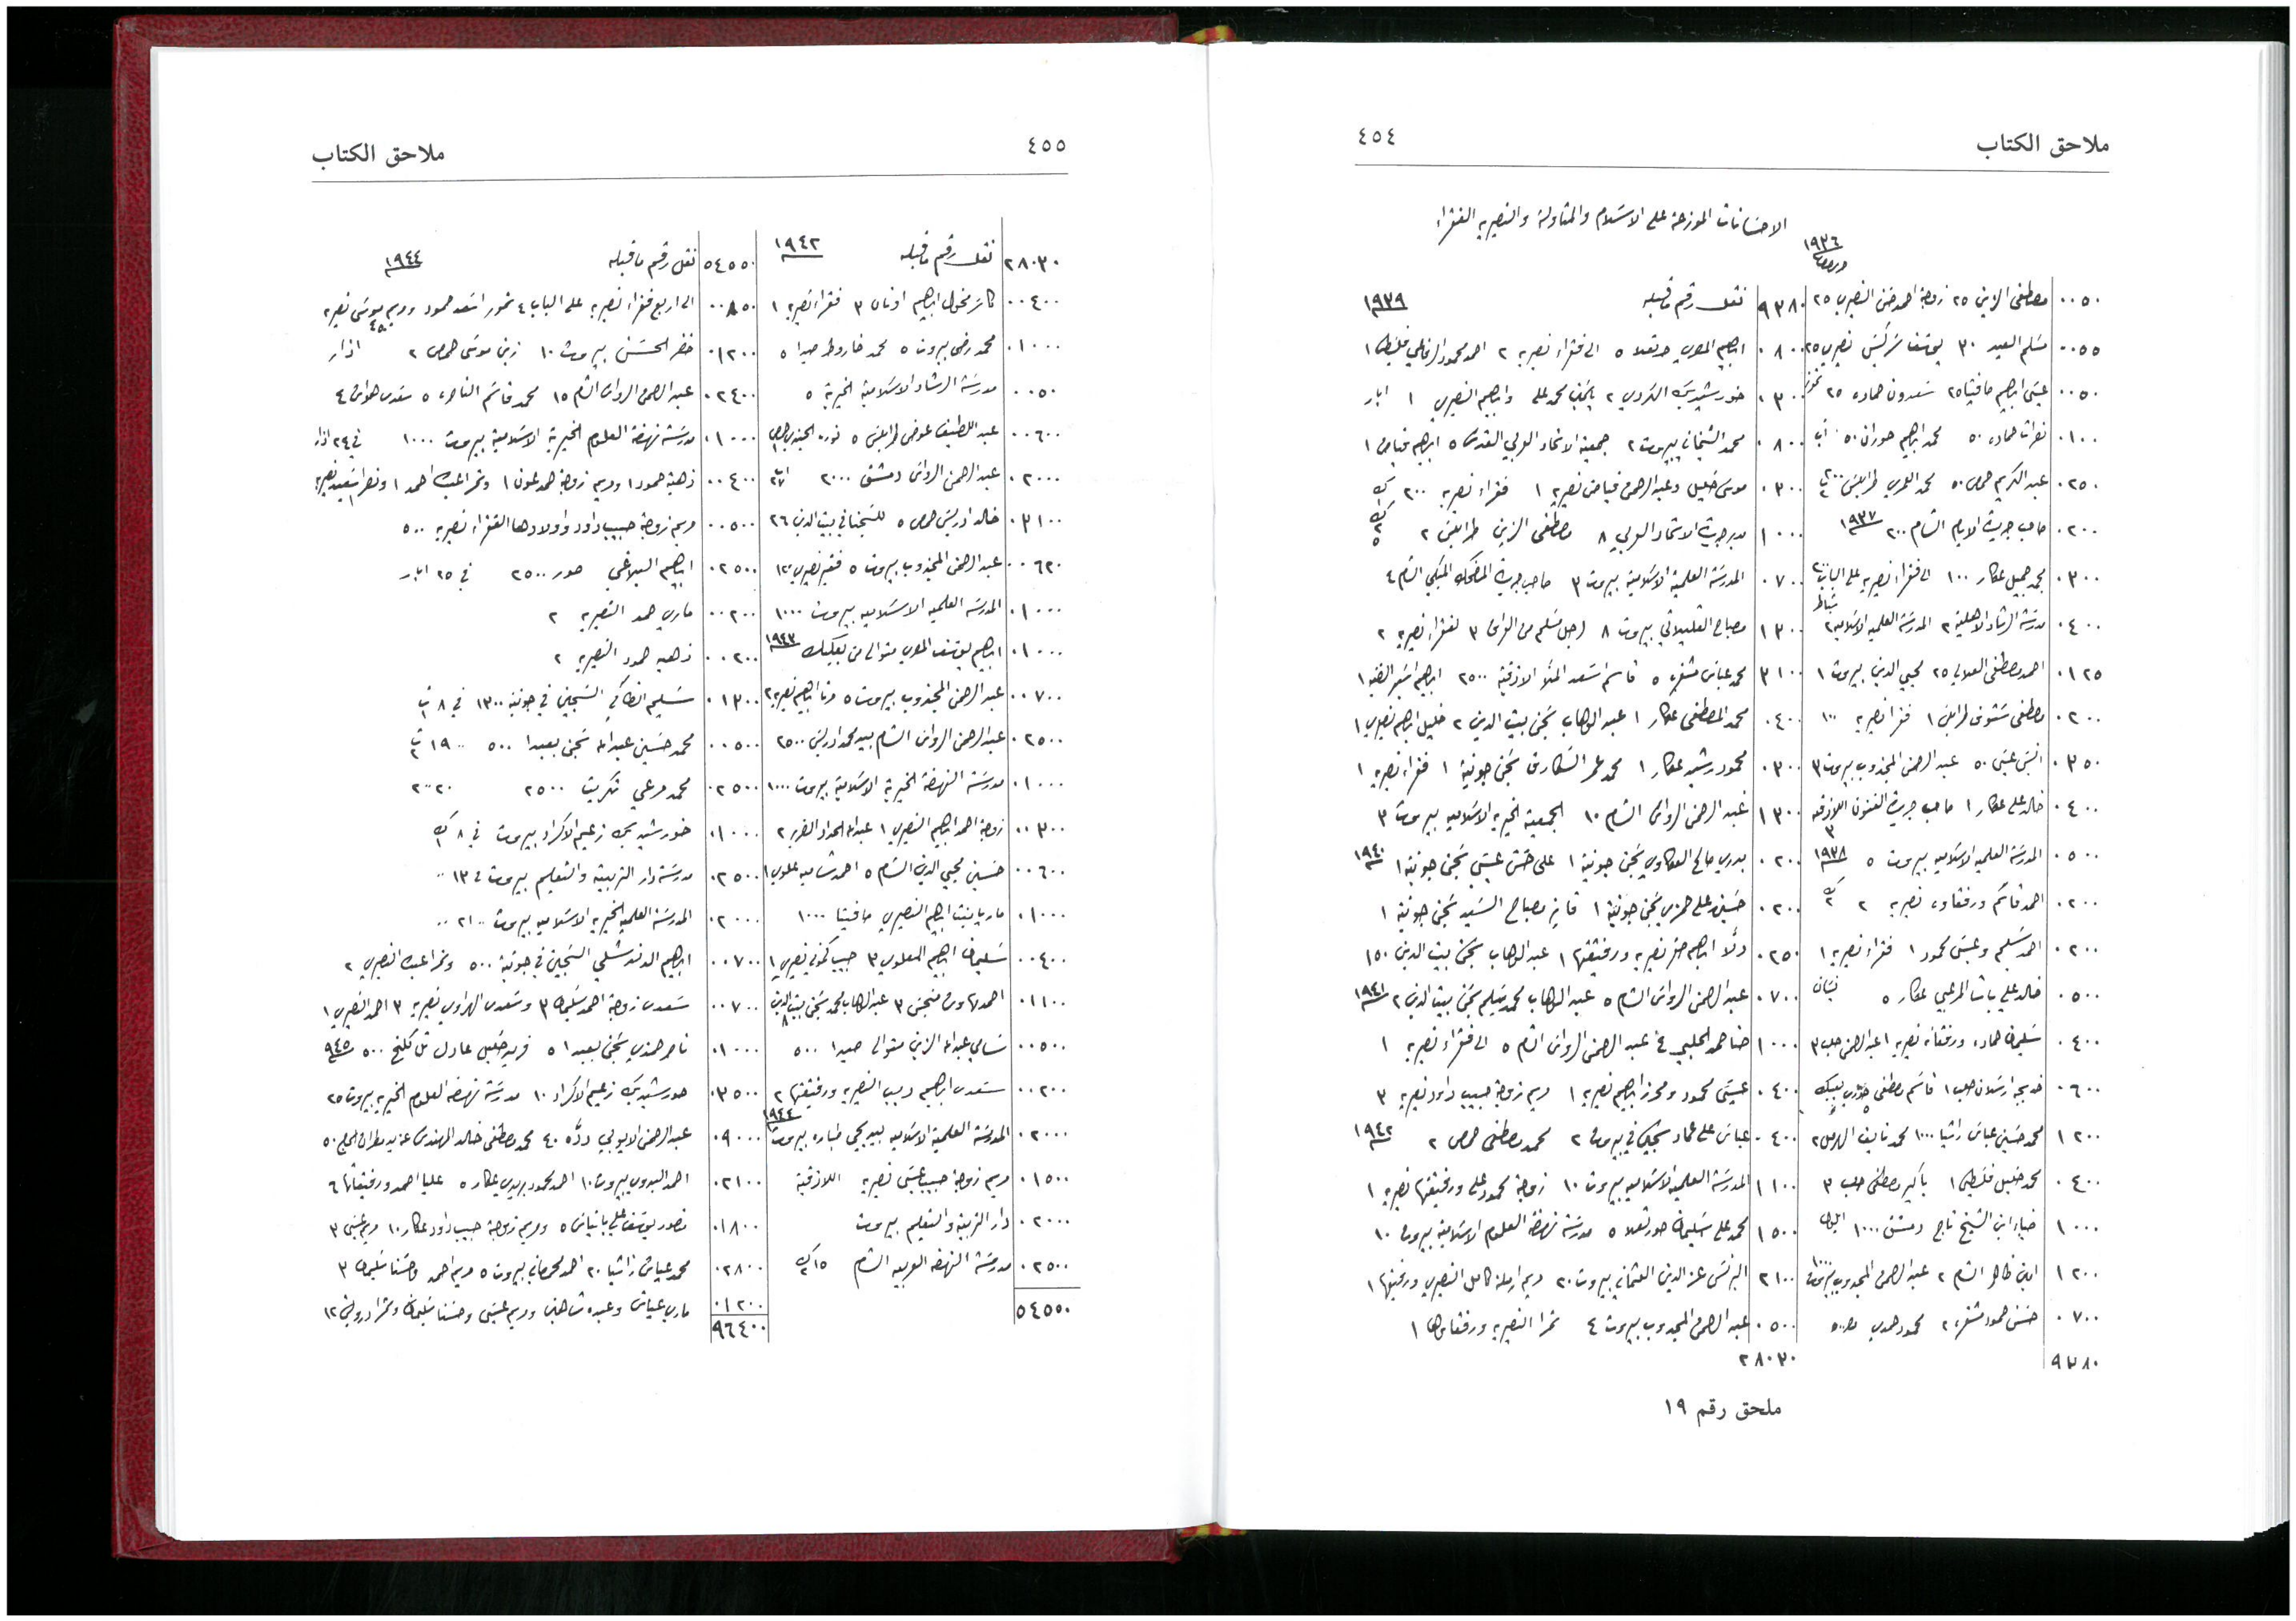 ملاحق الكتاب ٤٥٤
الاحسانات الموزعة على الاسلام والمتاولة والنصيريه الفقراء
١٩٣٦
٠٠٥٠ مصطفى الزين ٢٥ زوجة احمد حسن النصيري ٢٥
٠٠٥٥ مسلم العيد ٣٠ يوسف سركيس نصيري ٢٥
٠٠٥٠ عيسى ابراهيم صافيتا ٢٥ سعدون حماده ٢٥ تموز
٠١٠٠ نصرات حماده ٥٠ محمد ابراهيم حوران ٥٠ آب
٠٢٥٠ عبد الكريم حمص ٥٠ محمد العمري طرابلس ٢٠٠
٠٢٠٠ صاحب جريدة الايام الشام ٢٠٠ ١٩٣٧
٠٣٠٠ محمد جميل عكار ١٠٠ الى فقراء نصيريه على الباب ٢٠٠
٠٤٠٠ مدرسة الرشاد الاهلية ٢ المدرسة العلميه الاسلاميه ٢ شباط
٠١٢٥ احمد مصطفى العلالي ٢٥ محيي الدين بيروت ١
٠٢٠٠ مصطفى طرابلس ١ فقرا نصيريه ١٠٠
٠٣٥٠ انيس عيسى ٥٠ عبد الرحمن المجذوب بيروت ٣
٠٤٠٠ خالد على عكار ١ صاحب جريدة الفنون اللاذقيه ٣
٠٥٠٠ المدرسة العلميه الاسلاميه بيروت ٥ ١٩٣٨
٠٢٠٠ احمد قاسم ورفقاه نصيريه ٢ ك٢
٠٢٠٠ احمد سليم وعيسى محمود ١ فقراء نصيريه ١
٠٥٠٠ خالد على باشا المرعبي عكار ٥ نيسان
٠٤٠٠ سليمان حماده ورفقائه نصيريه ١ عبد الرحمن حلب ٣
٠٦٠٠ خديجه ارسلان حلب ١ قاسم مصطفى بعلبك ٥
١٢٠٠ محمد حسين عباس راشيا ١٠٠٠ محمد نايف الهرمل ٢
٠٤٠٠ محمد خليل فلسطين ١ باكير مصطفى حلب ٣
١٠٠٠ ضياء ابن الشيخ تاج دمشق ١٠٠٠ ايلول
١٢٠٠ امين ظاهر الشام ٢ عبد الرحمن المجذوب بيروت ١٠٠٠
٠٧٠٠ حسن حمود مشغره ٢ محمود حمدي ٥٠٠
٩٣٨٠
٩٣٨٠ نقل رقم ما قبله ١٩٣٩
٠٨٠٠ ابراهيم المصري ٥ الى فقراء نصيريه ٢ احمد محمود فلسطين ١
٠٣٠٠ خورشيد بك الكردي ٢ محمد على وابراهيم النصيري ١ ايار
٠٨٠٠ محمد الشيخاني بيروت ٢ جمعية الاتحاد العربي القدس ٥ ابراهيم فياض ١
٠٣٠٠ موسى خليل وعبد الرحمن فياض نصيريه ١ فقراء نصيريه ٢٠٠ ك١
١٠٠٠ مدير جريدة الاتحاد العربي ٨ مصطفى الزين طرابلس ٢ ك٢
٠٧٠٠ المدرسة العلمية الاسلامية بيروت ٣ صاحب جريدة المضحك المبكي الشام ٤
١٣٠٠ مصباح القليلاتي بيروت ٨ رجل مسلم من القرى ٣ لفقراء نصيريه ٢
٣١٠٠ محمد عباس مشغره ٥ قاسم اسعد الملا اللاذقية ٢٥٠٠ ابراهيم ١
٠٤٠٠ محمد المصطفى عكار ١ عبد الوهاب سجن بيت الدين ٢ خليل ابراهيم نصيري ١
٠٣٠٠ محمود رشيد عكار ١ محمد عمر سجن جونية ١ فقراء نصيريه ١
١٣٠٠ عبد الرحمن الرواس الشام ١٠ الجمعية الخيريه الاسلاميه بيروت ٣
٠٢٠٠ بدري صالح العكاوي سجن جونية ١ على حسن عيسى سجن جونية ١ ١٩٤٠
٠٢٠٠ حسين على حمزه سجن جونية ١ فايز مصباح السيد سجن جونية ١
٠٢٥٠ دلا ابراهيم نصيريه ورفيقتها ١ عبد الوهاب سجن بيت الدين ١٥٠
٠٧٠٠ عبد الرحمن الرواس الشام ٥ عبد الوهاب محمد سليم سجن بيت الدين ٢ ١٩٤١
١٠٠٠ حنا حمد الحلبي ٤ عبد الرحمن الرواس الشام ٥ الى فقراء نصيريه ١
٠٤٠٠ عيسى محمود ومحرز ابراهيم نصيريه ١ مريم زوجة حبيب داود نصيريه ٣
٠٤٠٠ عباس على عماد في بيروت ٢ محمد مصطفى حمص ٢ ١٩٤٢
١١٠٠ المدرسة العلمية الاسلاميه بيروت ١٠ زوجة محمود على ورفيقتها نصيريه ١
١٥٠٠ محمد على سليمان ٥ مدرسة نهضة العلوم الاسلامية بيروت ١٠
٢١٠٠ البرنس عز الدين العثماني بيروت ٢٠ مريم ارملة كامل النصيري ورفيقتها ١
٠٥٠٠ عبد الرحمن المجذوب بيروت ٤ تمرا النصيريه ورفقاها ١
٢٨٠٣٠
ملحق رقم ١٩
٤٥٥ ملاحق الكتاب
٢٨٠٣٠ نقل رقم ما قبله ١٩٤٢
٠٠٤٠٠ ابراهيم ٣ فقراء نصيريه ١
٠١٠٠٠ محمد رضى بيروت ٥ محمد صيدا ٥
٠٠٥٠ مدرسة الرشاد الاسلامية الخيرية ٥
٠٠٦٠٠ عبد اللطيف عوض طرابلس ٥ حمص ١
٠٢٠٠٠ عبد الرحمن الرواس دمشق ٢٠٠٠
٠٣١٠٠ خالد ادريس حمص ٥ للسجنا في بيت الدين ٢٦
٠٠٦٢٠ عبد الرحمن المجذوب بيروت ٥ فقير نصيري ١٢٠
٠١٠٠٠ المدرسة العلميه الاسلاميه بيروت ١٠٠٠
٠١٠٠٠ ابراهيم يوسف المصري متوالي من بعلبك ١٩٤٣
٠٠٧٠٠ عبد الرحمن المجذوب بيروت ٥ ابراهيم نصيريه ٢
٠٢٥٠٠ عبد الرحمن الرواس الشام بيد محمد ادريس ٢٥٠٠
٠١٠٠٠ مدرسة النهضة الخيرية الاسلامية بيروت ١٠٠٠
٠٠٣٠٠ زوجة احمد ابراهيم النصيري ١ عبدالله الحداد الضرير ٢
٠٠٦٠٠ حسين محيي الدين الشام ٥ احمد علوي ١
٠١٠٠٠ ماريا بنت ابراهيم النصيري صافيتا ١٠٠٠
٠٠٤٠٠ سليمان ابراهيم العلوي ٣ حبيب نصيري ١
٠١١٠٠ احمد ٣ عبد الوهاب محمد سجن بيت الدين ٨
٠٠٥٠٠ سامي عبدالله الزين متوالي صيدا ٥٠٠
٠٠٢٠٠ سعدى ابراهيم ديب النصيريه ورفيقتها ٢
٠٢٠٠٠ المدرسة العلمية الاسلاميه بيد يحيى طباره بيروت ١٩٤٤
٠١٥٠٠ مريم زوجة حبيب عيسى نصيريه اللاذقية
٠٢٠٠٠ دار التربية والتعليم بيروت
٠٢٥٠٠ مدرسة النهضة العربيه الشام ١٥ ك٢
٥٤٥٥٠
٥٤٥٥٠ نقل رقم ما قبله ١٩٤٤
٠٠٨٥٠ الى اربع فقراء نصيريه على الباب ٤ اسعد حمود ومريم موسى نصيريه ٤٥٠
٠١٢٠٠ خضر الحسن بيروت ١٠ زين موسى حمص ٢ اذار
٠٢٤٠٠ عبد الرحمن الرواس الشام ١٥ محمد قاسم الناصره ٥ سعدى ٤
٠١٠٠٠ مدرسة نهضة العلوم الخيرية الاسلامية بيروت ١٠٠٠ في ٢٤ اذار
٠٠٤٠٠ ذهبية حمود ١ ومريم زوجة حمد عون ١ احمد ١
٠٠٥٠٠ مريم زوجة حبيب داود واولادها الفقراء نصيريه ٥٠٠
٠٢٥٠٠ ابراهيم صور ٢٥٠٠ في ٢٥ ايار
٠٠٢٠٠ ماري حمد النصيريه ٢
٠٠٢٠٠ ذهبيه حمود النصيريه ٢
٠١٣٠٠ سليم انطاكي السجين في جونية ١٣٠٠ في ٨ ت١
٠٠٥٠٠ محمد حسين عبدالله سجن بعبدا ٥٠٠ ١٩ ت٢
٠٢٥٠٠ محمد مرعي تكريت ٢٥٠٠ ٢٠
٠١٠٠٠ خورشيد بك زعيم الاكراد بيروت في ٨ ك١
٠٢٥٠٠ مدرسة دار التربية والتعليم بيروت في ١٣
٠٢٠٠٠ المدرسة العلميه الخيريه الاسلاميه بيروت ٢١
٠٠٧٠٠ ابراهيم الدندشلي السجين في جونية ٥٠٠ النصيري ٢
٠٠٧٠٠ سعدى زوجة احمد سليمان ٣ وسعدى الهراوي نصيريه ٣ احمد النصيري ١
٠١٠٠٠ ناصر حمدي سجن بعبدا ٥ فريد خليل عادل تل كلخ ٥٠٠ ٩٤٥
٠٣٥٠٠ خورشيد بك زعيم الاكراد ١٠ مدرسة نهضة العلوم الخيريه بيروت ٢٥
٠٩٠٠٠ عبد الرحمن الايوبي ددّه ٤٠ محمد مصطفى خالد المهندس ٥٠
٠٢١٠٠ احمد البدوي بيروت ١٠ احمد محمود عكار ٥ عليا احمد ورفيقاتها ٦
٠١٨٠٠ نصور يوسف على بانياس ٥ ومريم زوجة حبيب داود عكار ١٠ مريم عيسى ٣
٠٢٨٠٠ محمد عياش راشيا ٢٠ احمد بيروت ٥ مريم احمد وحسنا سليمان ٣
٠١٢٠٠ ماري عياش وعبده شاهين ومريم عيسى وحسنا سليمان وتمرا درويش ١٢
٩٦٤٠٠